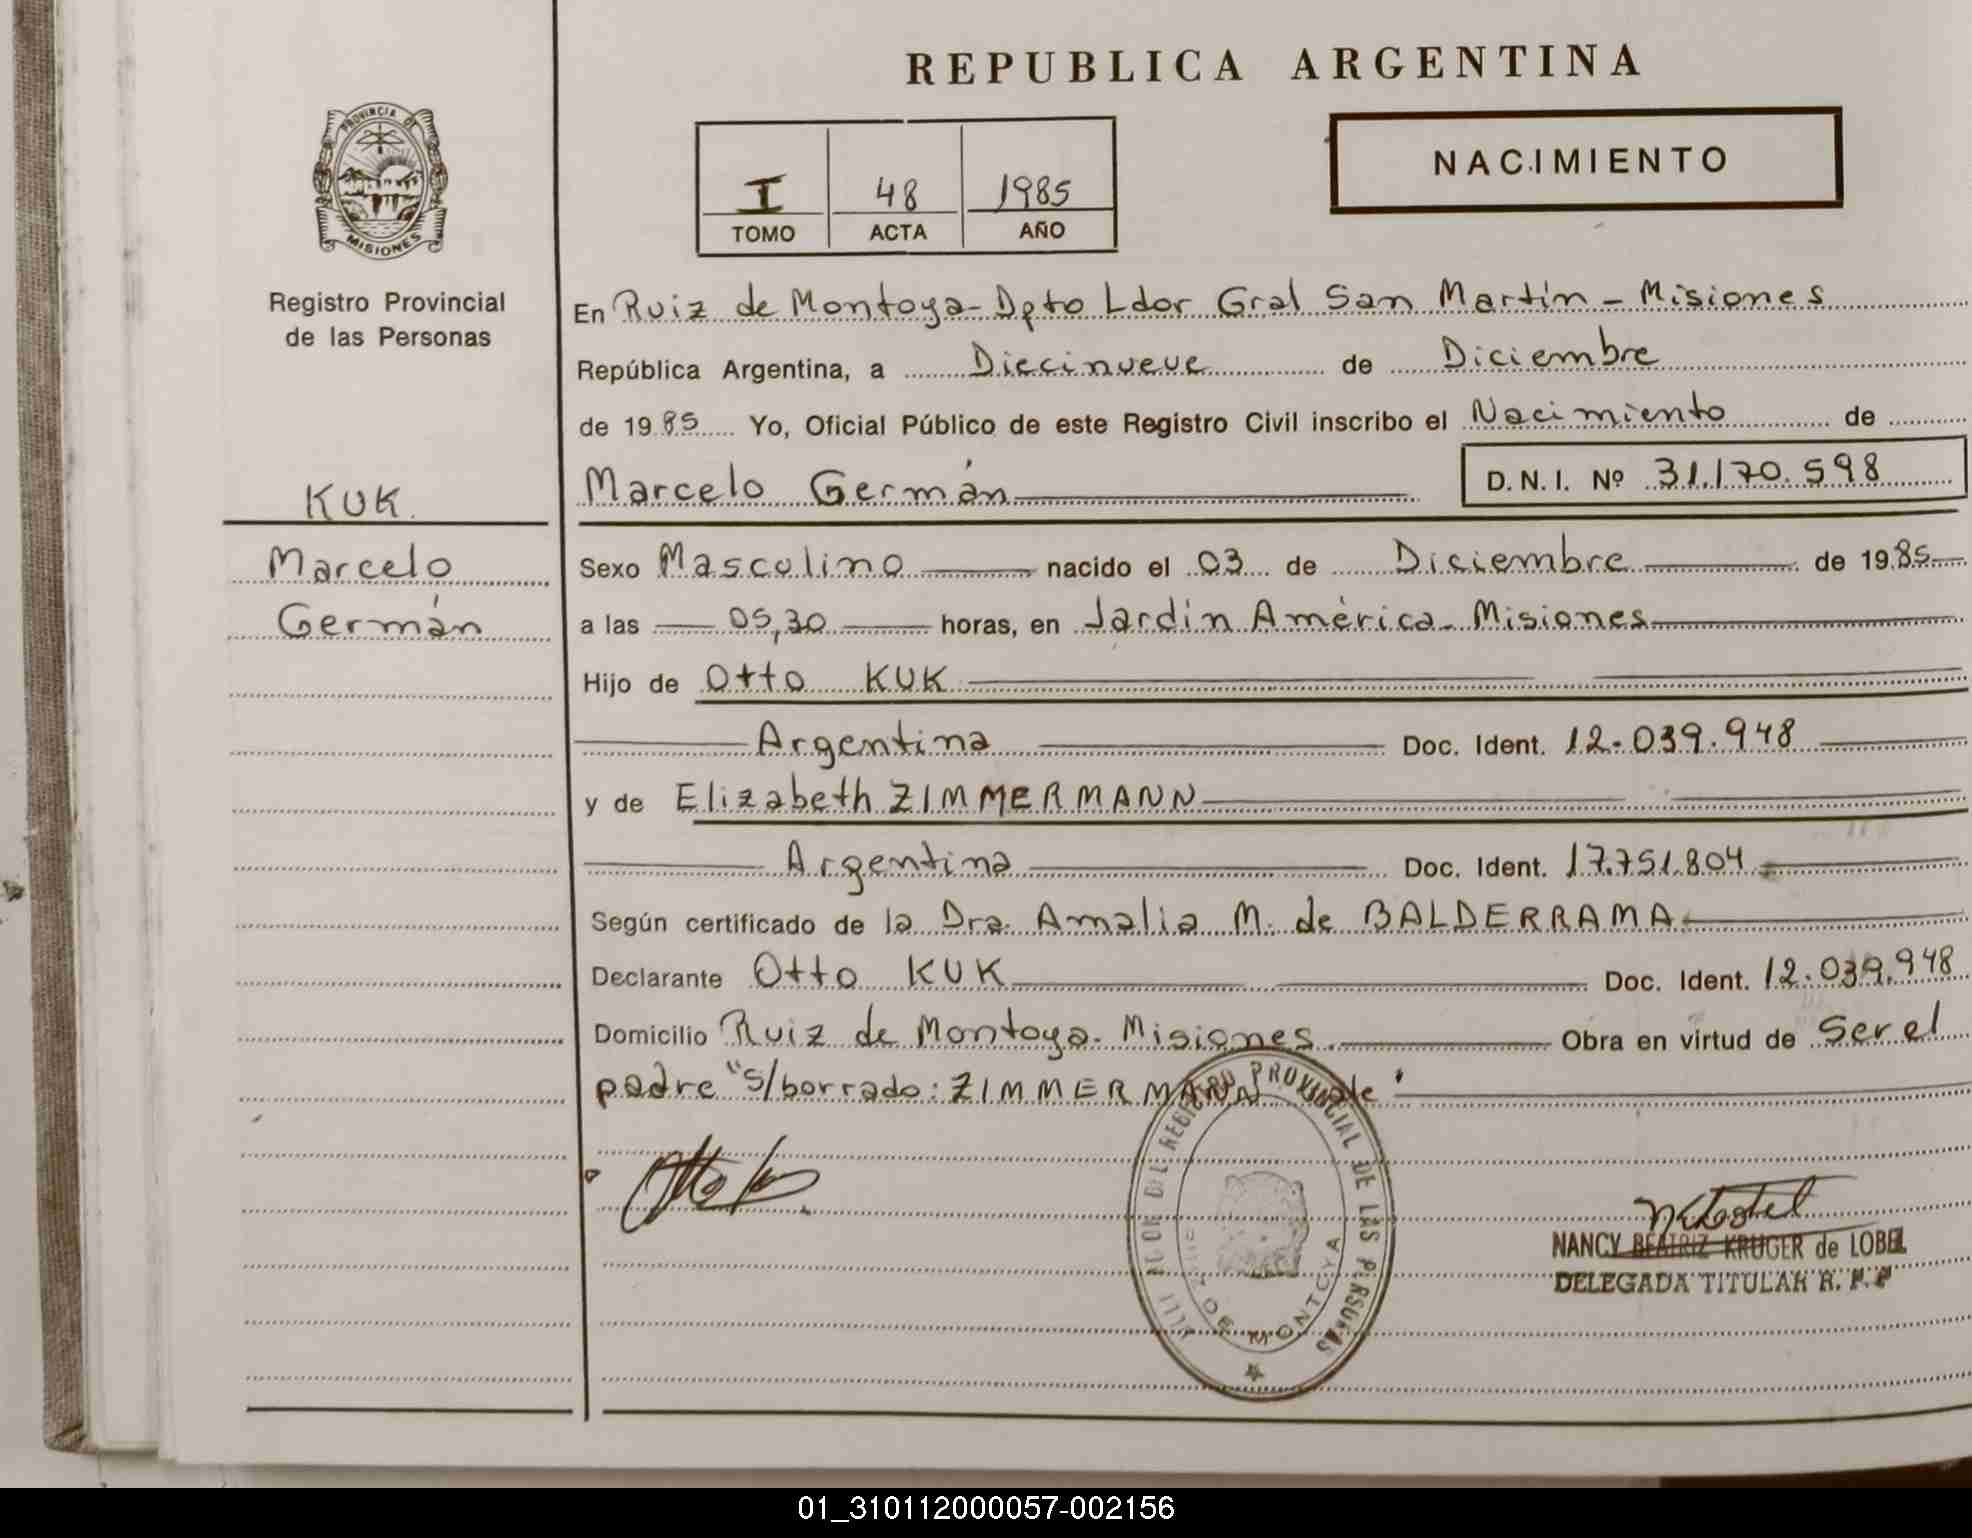 REPUBLICA ARGENTINA
PROVINCIA DE
MISIONES
Registro Provincial
de las Personas
I 48 1985
TOMO ACTA AÑO
NACIMIENTO
En Ruiz de Montoya-Dpto Ldor Gral San Martín - Misiones
República Argentina, a Diecinueve de Diciembre
de 1985 Yo, Oficial Público de este Registro Civil inscribo el Nacimiento de
Marcelo Germán D.N.I. Nº 31.170.598
KUK.
Marcelo
Germán
Sexo Masculino nacido el 03 de Diciembre de 1985
a las 05,30 horas, en Jardín América - Misiones
Hijo de Otto KUK
Argentina Doc. Ident. 12.039.948
y de Elizabeth ZIMMERMANN
Argentina Doc. Ident. 17.751.804
Según certificado de la Dra. Amalia M. de BALDERRAMA
Declarante Otto KUK Doc. Ident. 12.039.948
Domicilio Ruiz de Montoya - Misiones. Obra en virtud de Ser el
padre "S/borrado: ZIMMERMANN vale"
REGISTRO PROVINCIAL DE LAS PERSONAS
DE MONTOYA
NANCY BEATRIZ KRUGER de LOBEL
DELEGADA TITULAR R. P. P
01_310112000057-002156